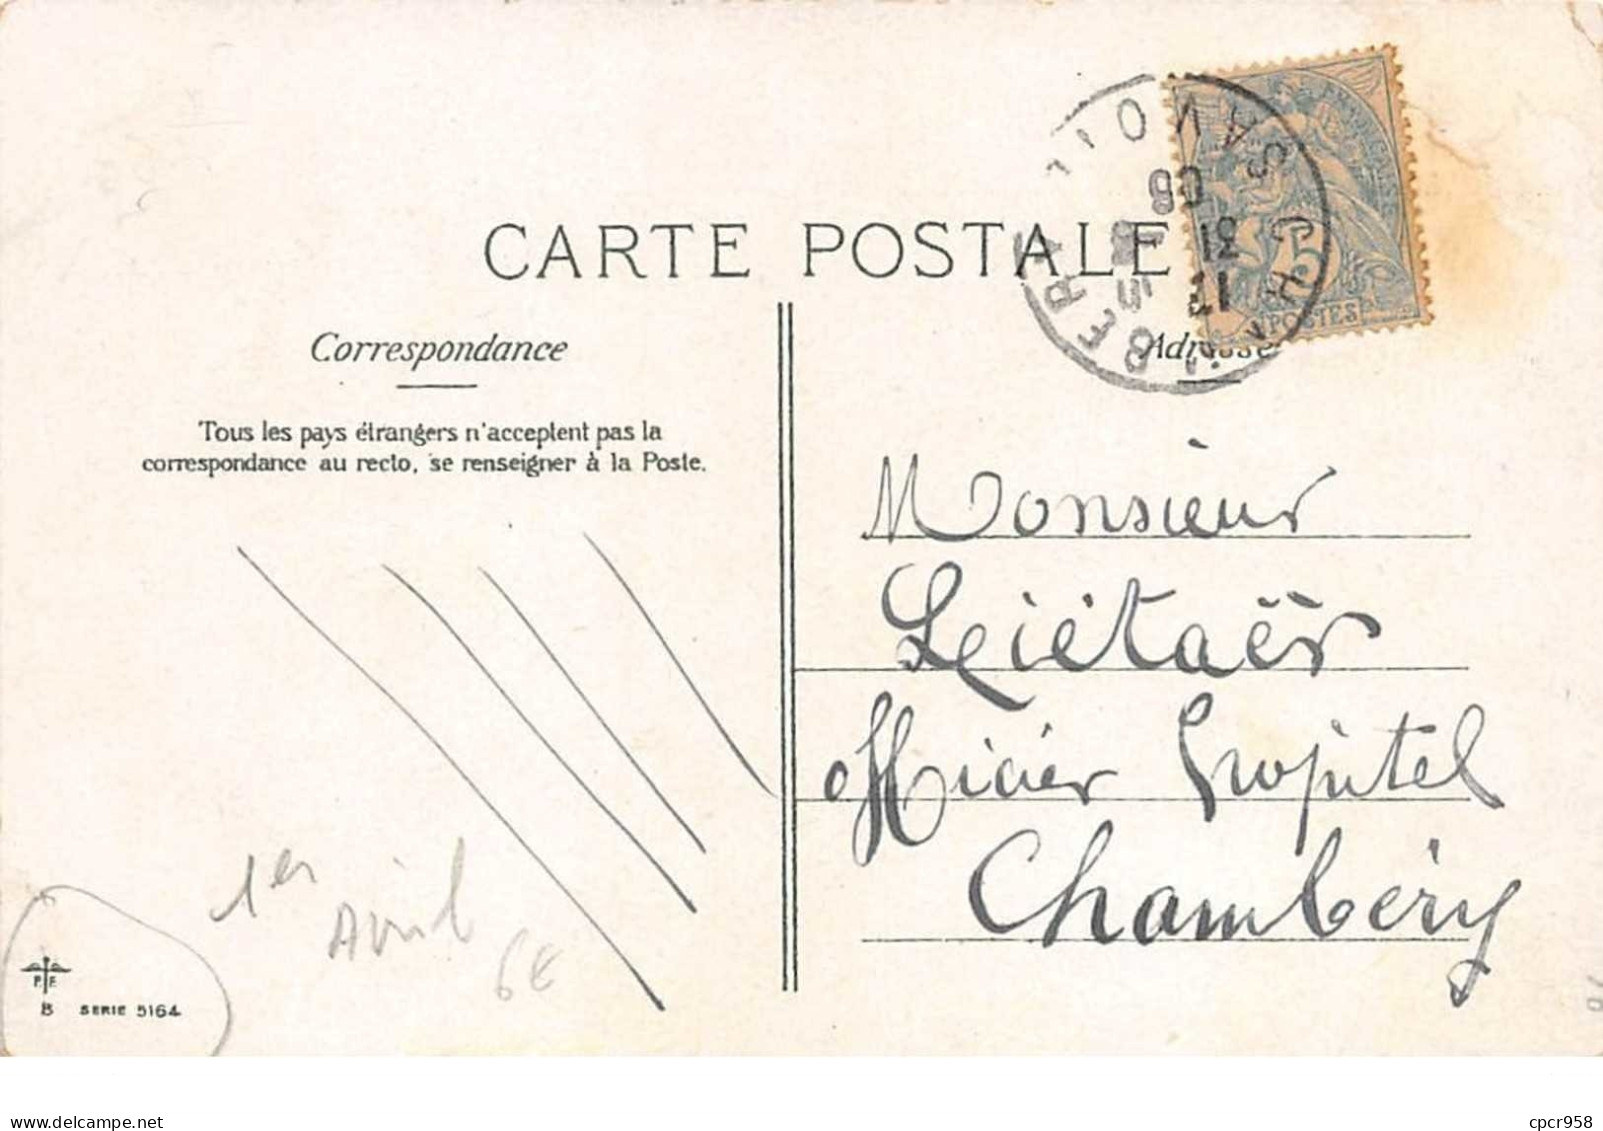 CARTE POSTALE
Correspondance
Adresse
Tous les pays étrangers n'acceptent pas la
correspondance au recto, se renseigner à la Poste.
5
POSTES
CHAMBERY
SAVOIE
17
31
08
Monsieur
Leiétaër
hôpital
Chambéry
1er
Avril
6€
P. F.
B SERIE 5164
www.delcampe.net
cpcr958